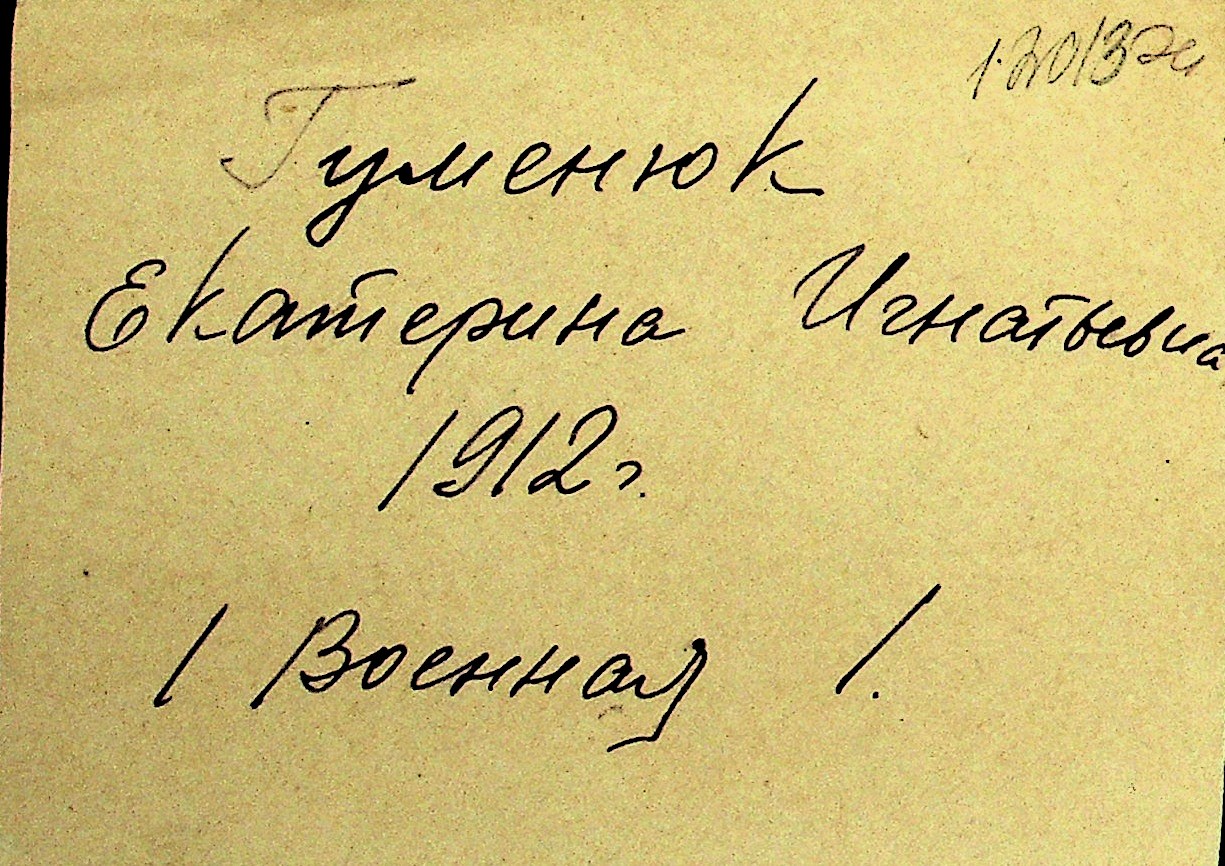 Гуменюк
Екатерина Игнатьевна
1912 г.
/ Военная /.